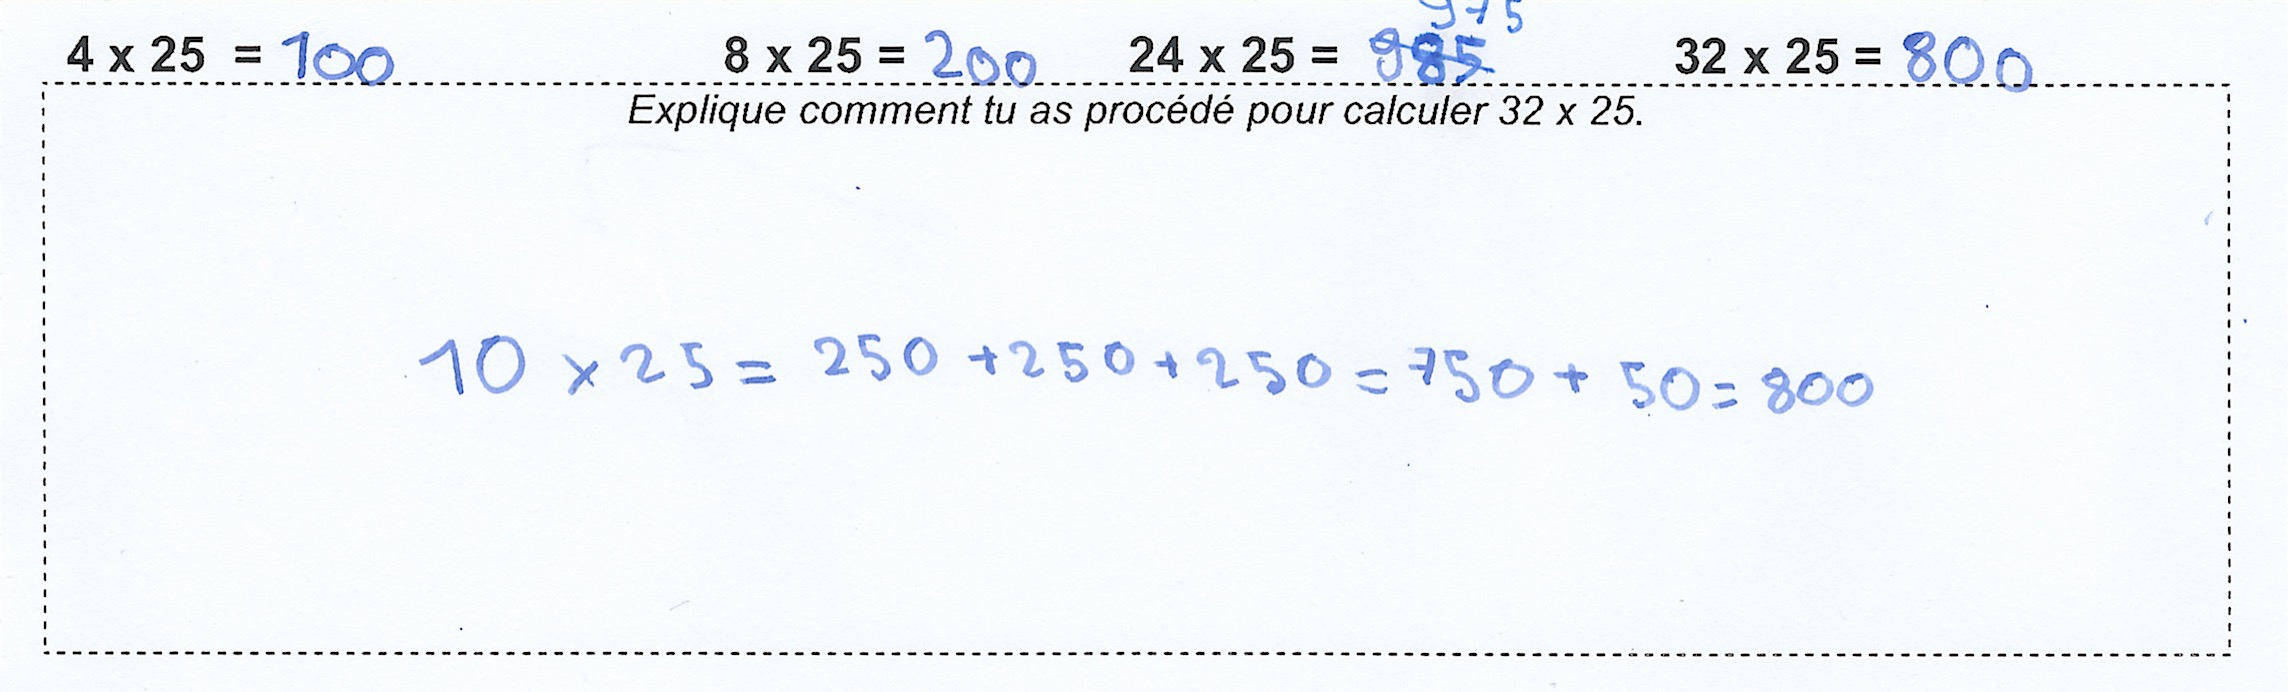 975
4 x 25 = 100 8 x 25 = 200 24 x 25 = 985 32 x 25 = 800
Explique comment tu as procédé pour calculer 32 x 25.
10 x 25 = 250 + 250 + 250 = 750 + 50 = 800